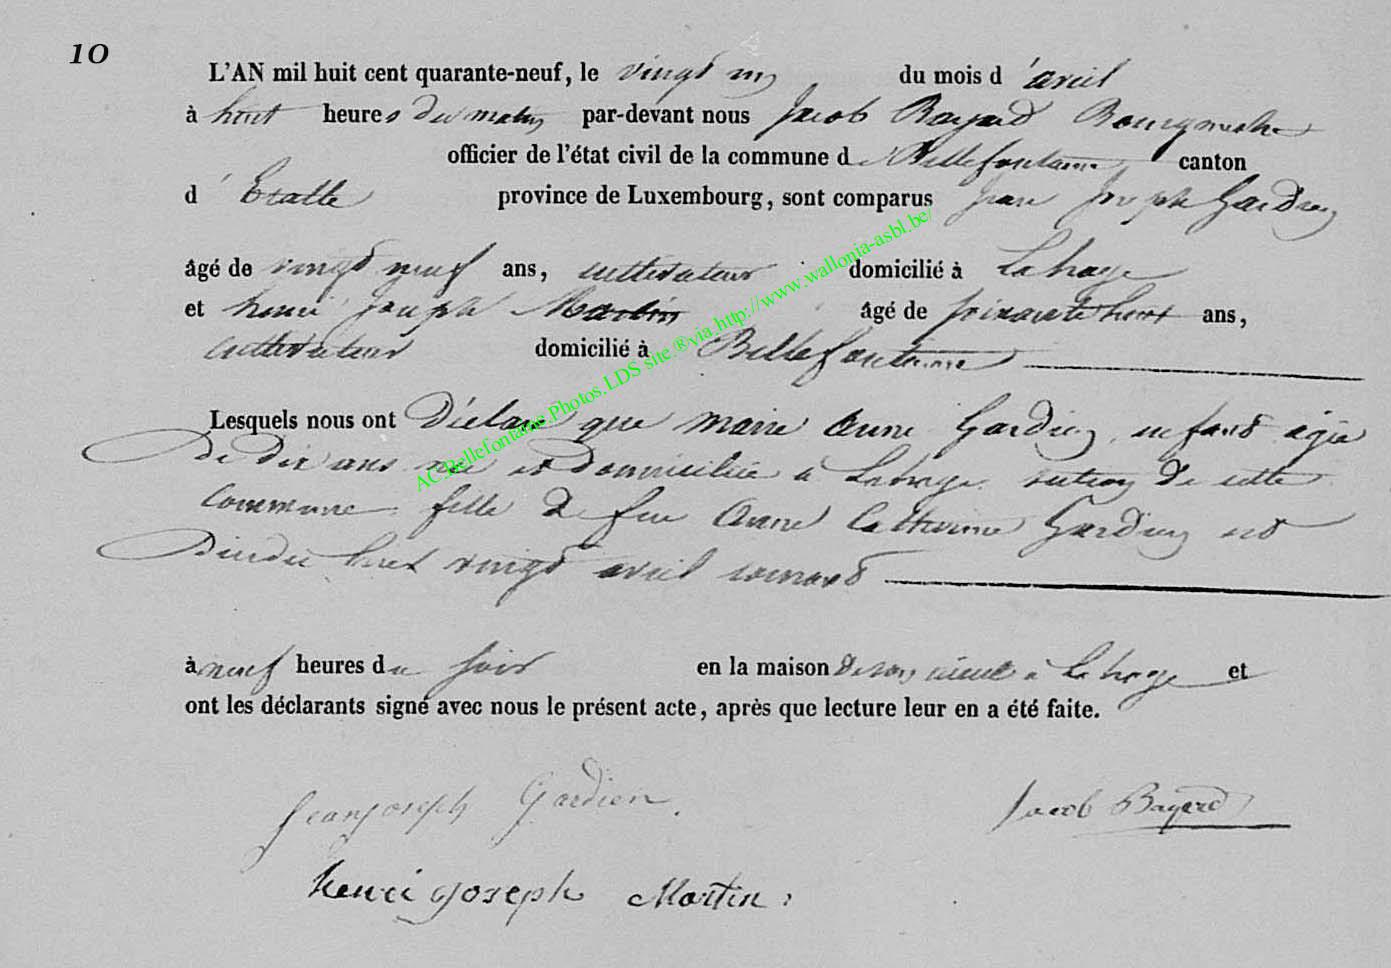 10
L'AN mil huit cent quarante-neuf, le vingt un du mois d'avril
à huit heures du matin par-devant nous Jacob Bayard Bourgmestre
officier de l'état civil de la commune de Bellefontaine canton
d'Etalle province de Luxembourg, sont comparus Jean Joseph Gardien
âgé de vingt neuf ans, cultivateur domicilié à Lahage
et henri joseph Martin âgé de soixante huit ans,
cultivateur domicilié à Bellefontaine
Lesquels nous ont Déclaré que marie Anne Gardien, enfant agée
De dix ans née et domiciliée à Lahage section de cette
commune fille de feu Anne Catherine Gardien est
Décédée hier vingt avril courant
à neuf heures du soir en la maison de son aieul à Lahage et
ont les déclarants signé avec nous le présent acte, après que lecture leur en a été faite.
Jean joseph Gardien. Jacob Bayard
henri joseph Martin
AC.Bellefontaine.Photos.LDS site.®via.http://www.wallonia-asbl.be/